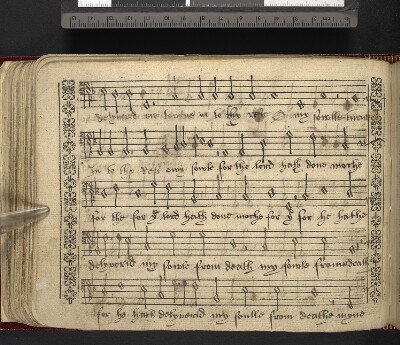 delyvered me torne in to thy rest O my sowlle turne
In to thy rest o my sowle for the lord hath done moche
for the for yͤ lord hath done moche for yͤ for he hathe
delyvered my sowle from death my sowle frome death
for he hath delyvered my soulle from deathe myne